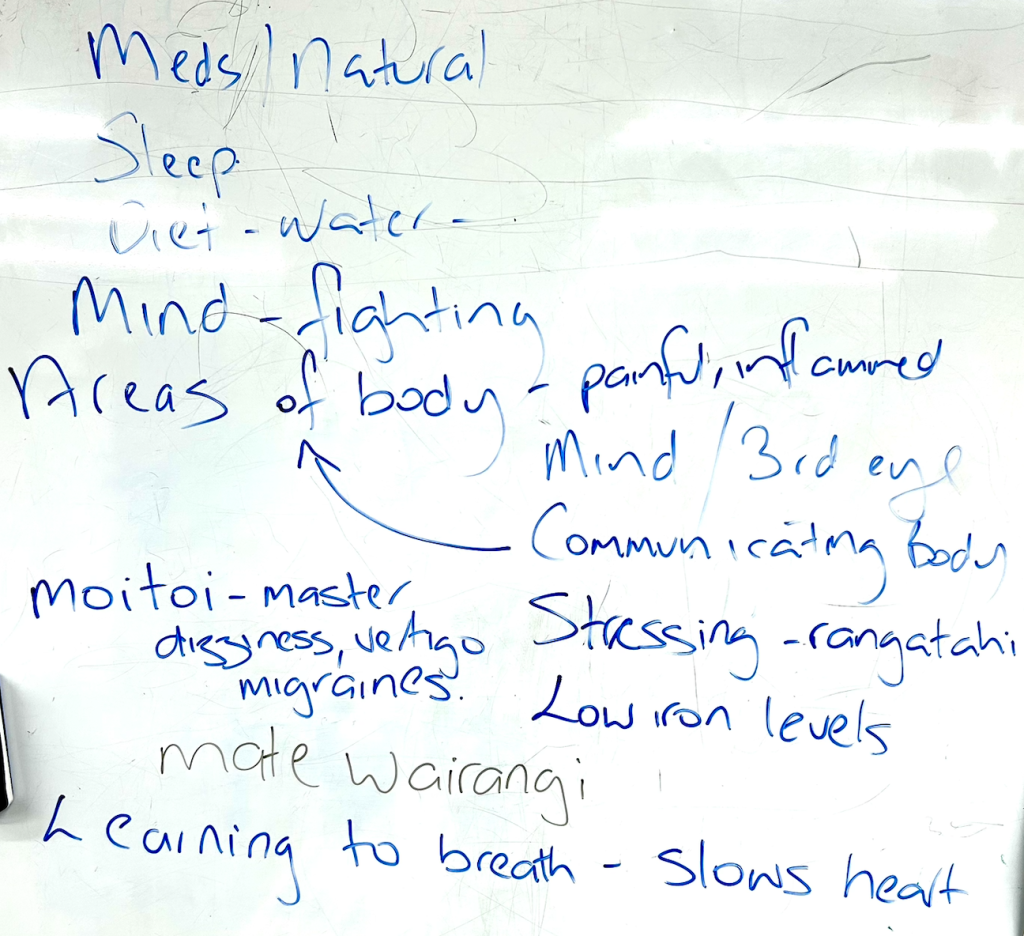 Meds/Natural
Sleep
Diet - Water -
Mind - fighting
Areas of body - painful, inflammed
Mind / 3rd eye
Communicating Body
Moitoi - master
dizziness, vertigo
migraines.
Stressing - rangatahi
Low iron levels
mate Wairangi
Learning to breath - slows heart